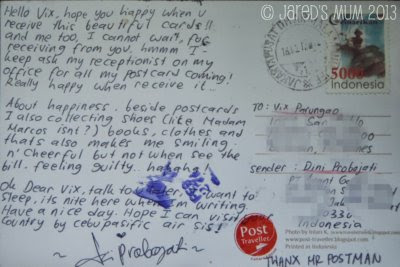 © JARED'S MUM 2013
Hello Vix, hope you happy when u
receive this beautiful cards!!
and me too, I cannot wait for
receiving from you. hmmm I
keep ask my receptionist on my
office for all my postcard coming!
Really happy when receive it..
About happiness, beside postcards
I also collecting shoes (like Madam
Marcos isnt?) books, clothes and
thats also makes me smiling
n' cheerful but not when see the
bill, feeling guilty.. hahaha
Ok Dear Vix, talk to later, want to
sleep, its nite here when I'm writing.
Have a nice day. Hope I can visit
Country by cebu pasific air sist
Dini Probojati
5000
Indonesia
TO: Vix Patungao
sender: Dini Probojati
Post
Traveller
www.post-traveller.blogspot.com
Printed in Indonesia
THANX MR POSTMAN